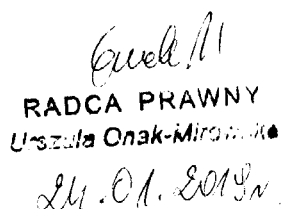 RADCA PRAWNY
Urszula Onak-Mirowska
24.01.2019r